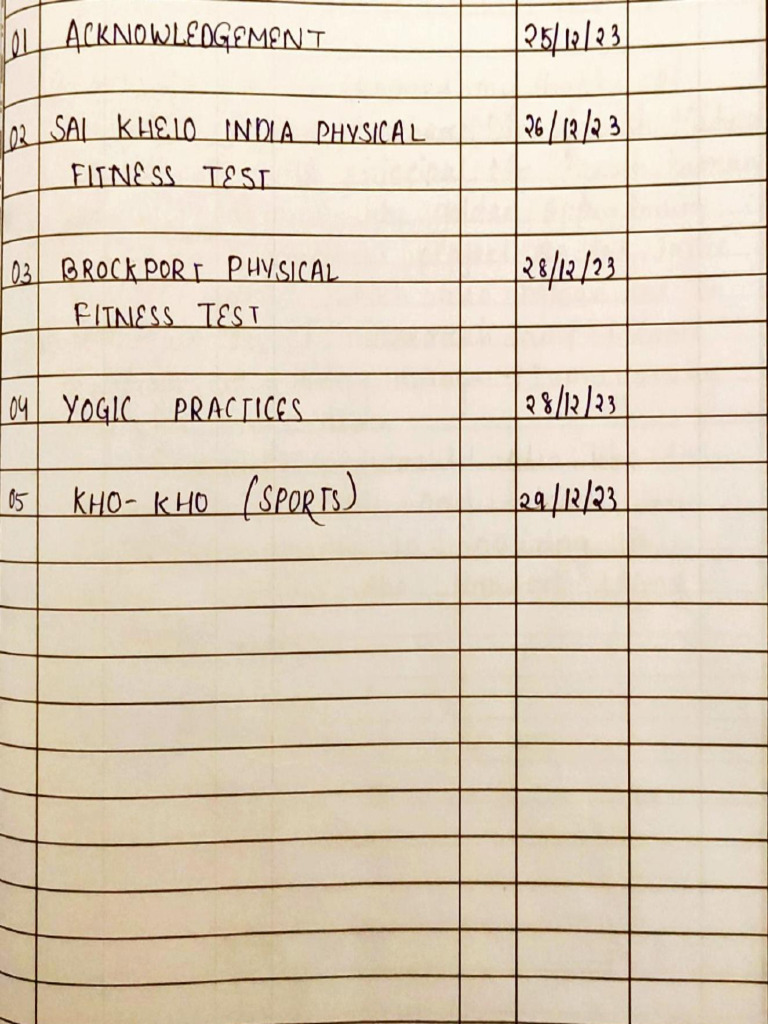 01 ACKNOWLEDGEMENT 25/12/23
02 SAI KHELO INDIA PHYSICAL 26/12/23
FITNESS TEST
03 BROCKPORT PHYSICAL 28/12/23
FITNESS TEST
04 YOGIC PRACTICES 28/12/23
05 KHO-KHO (SPORTS) 29/12/23